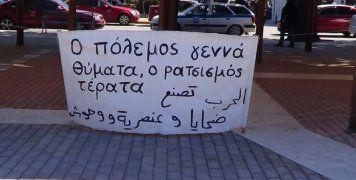 Ο πόλεμος γεννά
θύματα, ο ρατσισμός
τέρατα
الحرب تصنع
ضحايا و عنصرية ووحوش